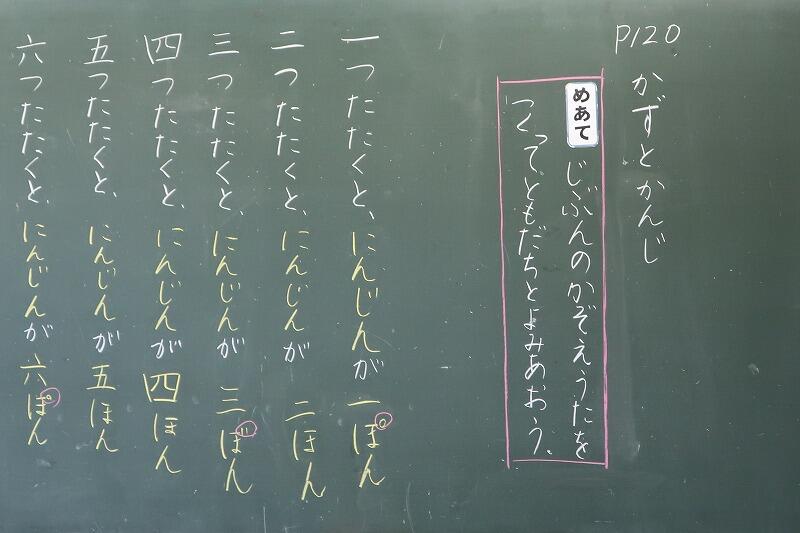 P120
かずとかんじ
めあて じぶんのかぞえうたを
つくってともだちとよみあおう。
一つたたくと、にんじんが一ぽん
二つたたくと、にんじんが二ほん
三つたたくと、にんじんが三ぼん
四つたたくと、にんじんが四ほん
五つたたくと、にんじんが五ほん
六つたたくと、にんじんが六ぽん